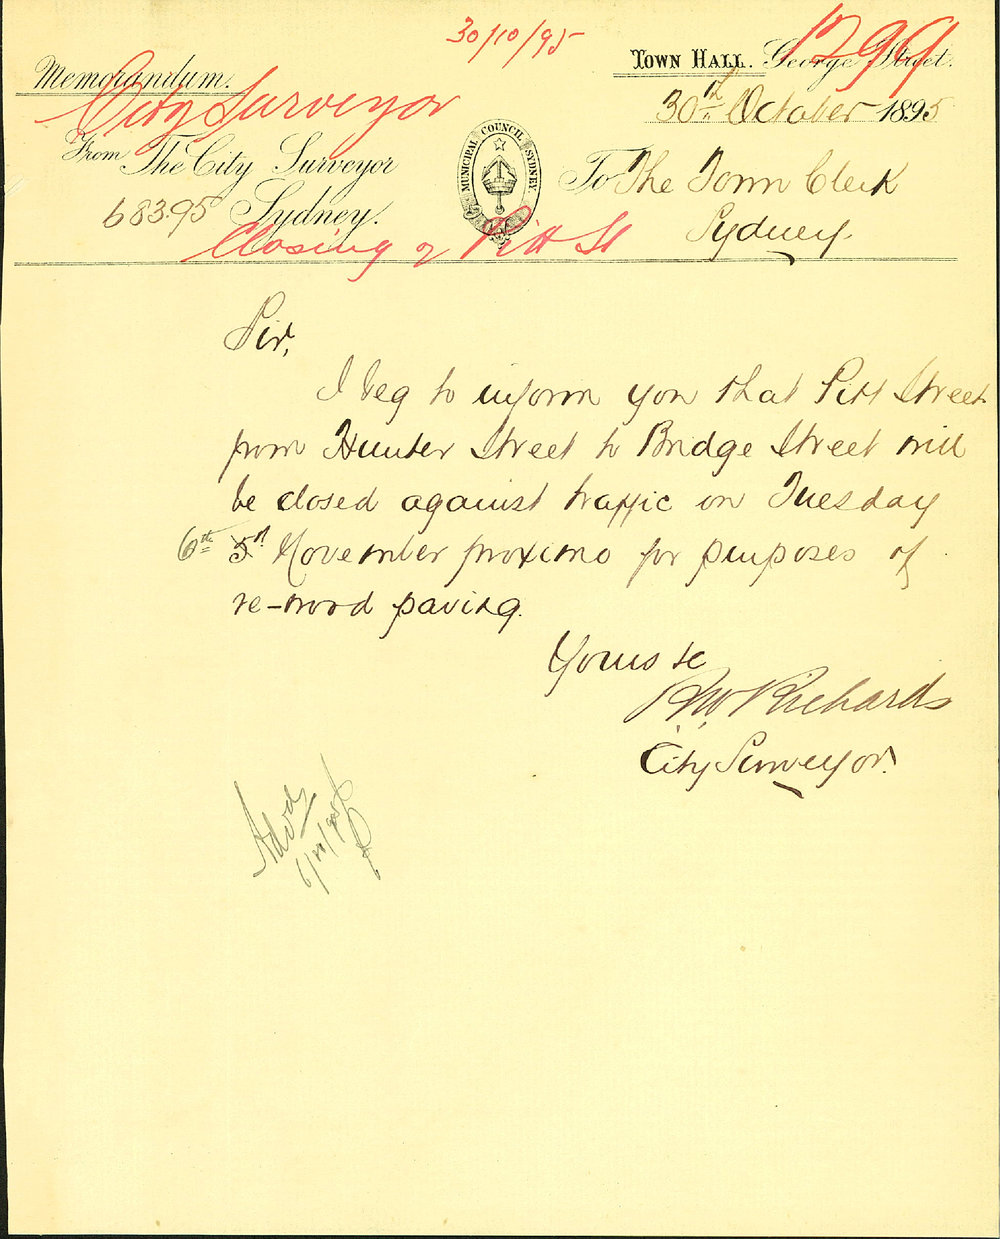 30/10/95
1299
Memorandum.
TOWN HALL. George Street.
City Surveyor
30th October 1895
MUNICIPAL COUNCIL SYDNEY.
From The City Surveyor
To The Town Clerk
683.95 Sydney.
Sydney.
Closing of Pitt St
Sir,
I beg to inform you that Pitt Street
from Hunter Street to Bridge Street will
be closed against traffic on Tuesday
6th 5th November proximo for purposes of
re-wood paving.
Yours &c
R W Richards
City Surveyor.
Advd